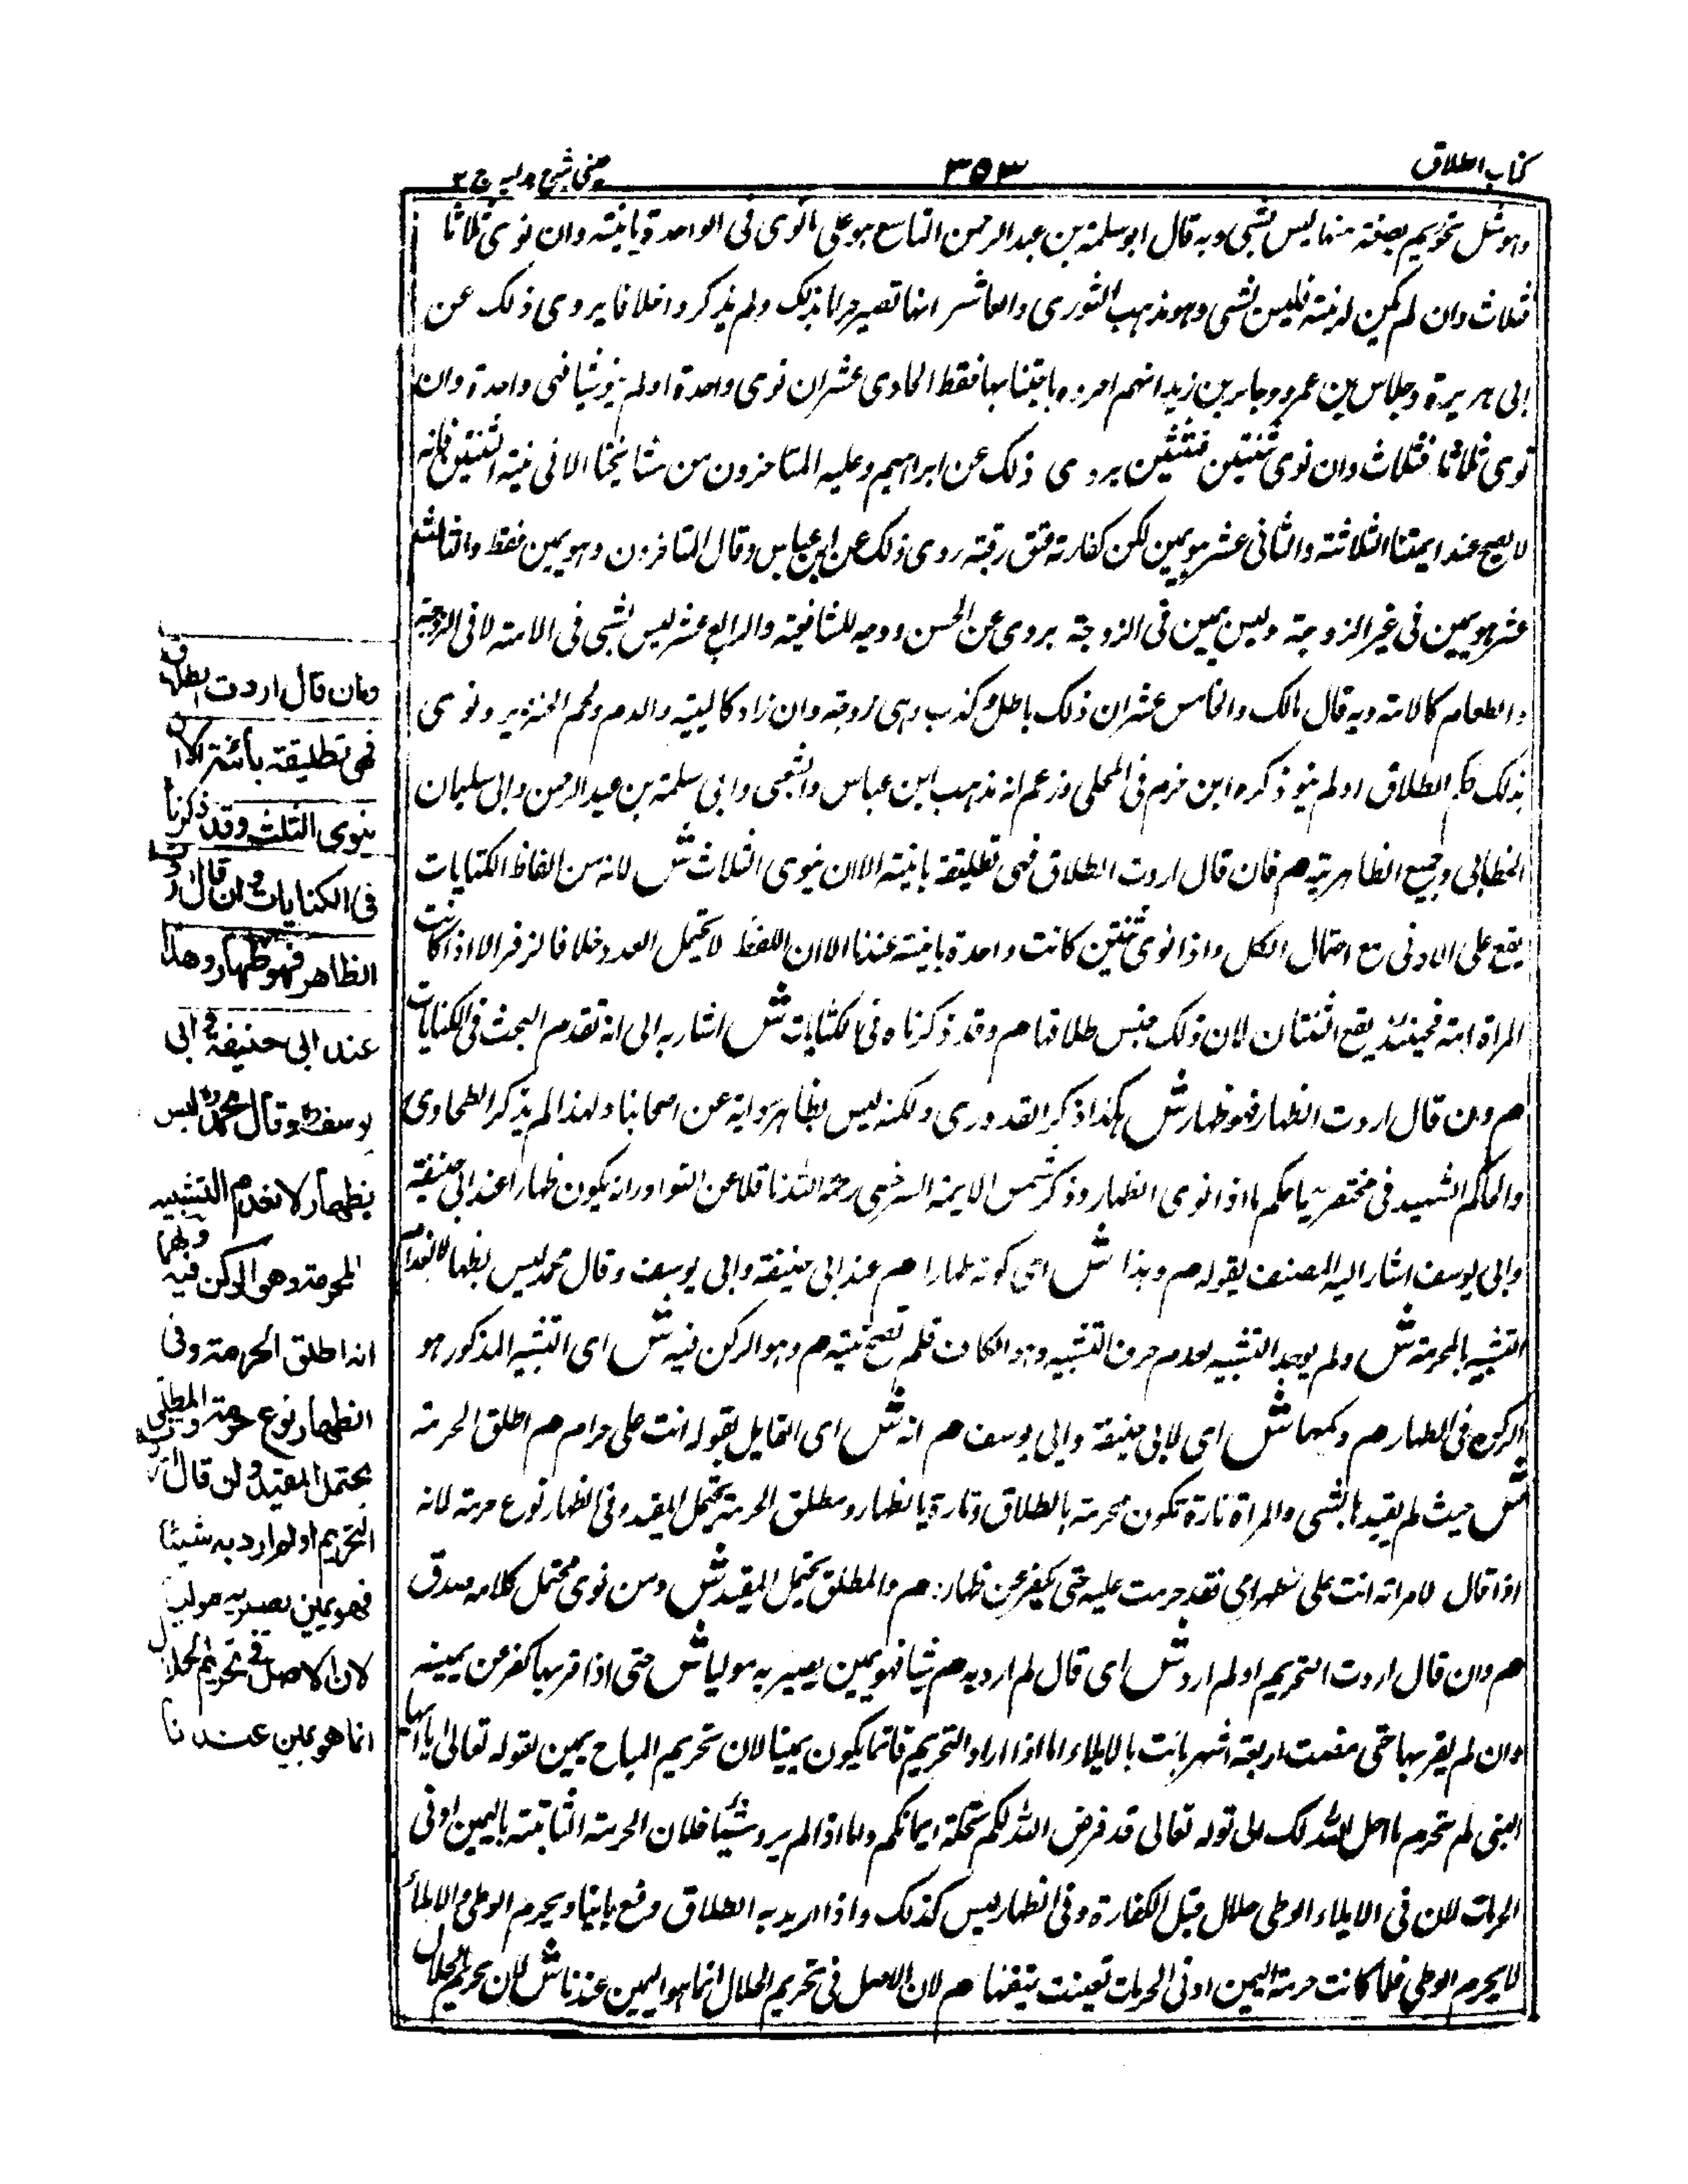 كتاب الطلاق
٣٥٣
عينى شرح هدايه ج ٢
وهو مثل تحريم بصفة منها ليس بشئ وبه قال ابو سلمة بن عبد الرحمن التاسع هو على ما نوى فى الواحدة بائنة وان نوى ثلاثا
فثلاث وان لم يكن له نية فليس بشئ وهو مذهب الثورى والعاشر انها تصير حراما بذلك ولم يذكروا طلاقا يروى ذلك عن
ابى هريرة وجلاس بن عمرو وجابر بن زيد انهم امروه باجتنابها فقط الحادى عشر ان نوى واحدة اولم ينو شيا فهى واحدة وان
نوى ثلاثا فثلاث وان نوى ثنتين فثنتين يروى ذلك عن ابراهيم وعليه المتاخرون من مشايخنا الا فى نية الثنتين فانه
لا يصح عند ايمتنا الثلاثة والثانى عشر هو يمين لكن كفارته عتق رقبة روى ذلك عن ابن عباس وقال المتاخرون وهو يمين فقط والثالث
عشر هو يمين فى غير الزوجة وليس يمين فى الزوجة يروى عن الحسن ووجه للشافعية والرابع عشر ليس بشئ فى الامة لا فى الزوجة
والطعام كالامة وبه قال مالك والخامس عشر ان ذلك باطل وكذب وهى زوجته وان زاد كالميتة والدم ولحم الخنزير ونوى
بذلك كله الطلاق اولم ينو ذكره ابن حزم فى المحلى وزعم انه مذهب ابن عباس والشعبى وابى سلمة بن عبد الرحمن وابى سليمان
الخطابى وجميع الظاهرية م فان قال اردت الطلاق فهى تطليقة باينة الا ان ينوى الثلاث ش لانه من الفاظ الكنايات
يقع على الادنى مع احتمال الكل واذا نوى ثنتين كانت واحدة باينة عندنا الا ان اللفظ لا يحتمل العدد خلافا لزفر الا اذا كانت
المراة امة فحينئذ يقع اثنتان لان ذلك جنس طلاقها م وقد ذكرناه فى الكنايات ش اشار به الى انه تقدم البحث فى الكنايات
م وان قال اردت الظهار فهو ظهار ش هكذا ذكر القدورى ولكنه ليس بظاهر رواية عن اصحابنا ولهذا لم يذكر الطحاوى
والحاكم الشهيد فى مختصريهما حكم ما اذا نوى الظهار وذكر شمس الايمة السرخسى رحمه الله ناقلا عن النوادر انه يكون ظهارا عند ابى حنيفة
وابى يوسف اشار اليه المصنف بقوله م وهذا ش اى كونه ظهارا م عند ابى حنيفة وابى يوسف وقال محمد ليس بظهار لانعدام
التشبيه بالمحرمة ش ولم يوجد التشبيه لعدم حرف التشبيه وهو الكاف فلم تصح نيته م وهو الركن فيه ش اى التشبيه المذكور هو
الركن فى الظهار م ولهما ش اى لابى حنيفة وابى يوسف م انه ش اى القايل بقوله انت على حرام م اطلق الحرمة
ش حيث لم يقيدها بشئ والمراة تارة تكون محرمة بالطلاق وتارة بالظهار ومطلق الحرمة يحتمل المقيد وفى الظهار نوع حرمة لانه
اذا قال لامراته انت على كظهر امى فقد حرمت عليه حتى يكفر عن ظهاره م والمطلق يحتمل المقيد ش ومن نوى محتمل كلامه صدق
م وان قال اردت التحريم اولم ارد ش اى قال لم ارد به م شيا فهو يمين يصير به موليا ش حتى اذا قربها كفر عن يمينه
وان لم يقربها حتى مضت اربعة اشهر بانت بالايلاء اما اذا اراد التحريم فانما يكون يمينا لان تحريم المباح يمين لقوله تعالى يا ايها
النبى لم تحرم ما احل الله لك الى قوله تعالى قد فرض الله لكم تحلة ايمانكم واما اذا لم يرد شيئا فلان الحرمة الثابتة باليمين ادنى
الحرمات لان فى الايلاء الوطى حلال قبل الكفارة وفى الظهار ليس كذلك واذا اريد به الطلاق وقع باينا ويحرم الوطى والايلاء
لا يحرم الوطى فلما كانت حرمة اليمين ادنى الحرمات تعينت بتيقنها م لان الاصل فى تحريم الحلال انما هو اليمين عندنا ش لان تحريم الحلال
وان قال اردت الطلاق
فهى تطليقة بائنة الا ان
ينوى الثلث وقد ذكرنا
فى الكنايات وان قال اردت
الظاهر فهو ظهار وهذا
عند ابى حنيفة وابى
يوسف وقال محمد ليس
بظهار لانعدام التشبيه
بالمحرمة وهو الركن فيه ولهما
انه اطلق الحرمة وفى
الظهار نوع حرمة والمطلق
يحتمل المقيد وان قال اردت
التحريم اولم ارد به شيئا
فهو يمين يصير به موليا
لان الاصل فى تحريم الحلال
انما هو يمين عندنا